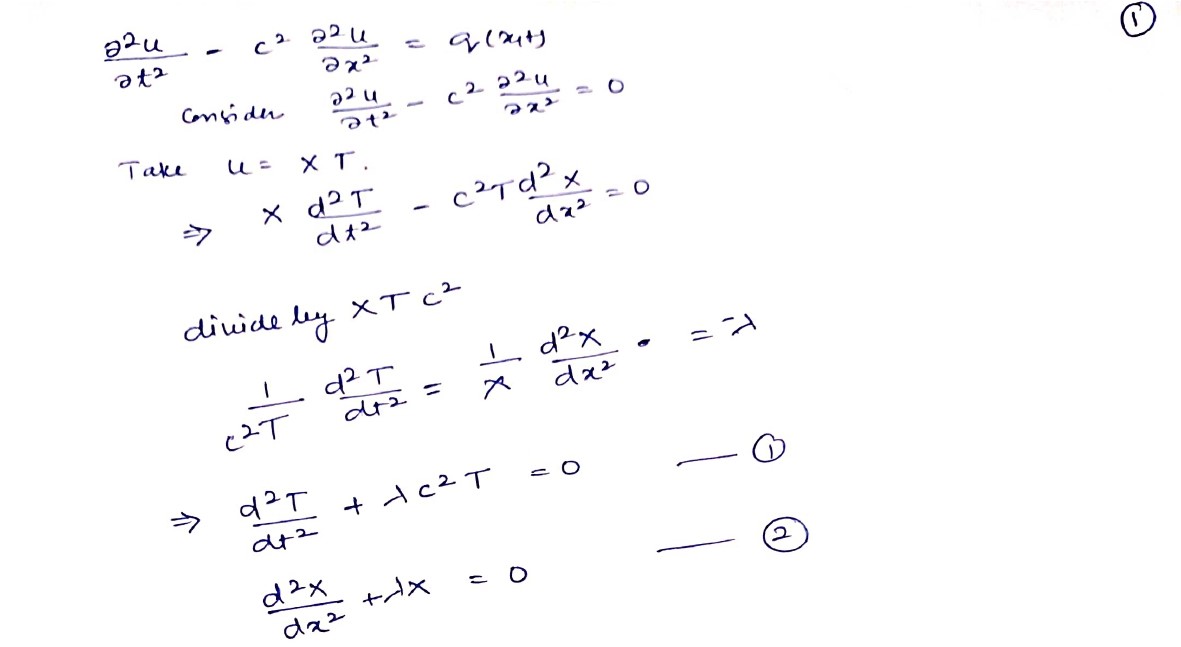 ①
∂²u/∂t² - c² ∂²u/∂x² = q(x,t)
Consider ∂²u/∂t² - c² ∂²u/∂x² = 0
Take u = X T.
⇒ X d²T/dt² - c²T d²X/dx² = 0
divide by X T c²
1/c²T d²T/dt² = 1/X d²X/dx² . = -λ
⇒ d²T/dt² + λc²T = 0 — ①
d²X/dx² + λX = 0 — ②